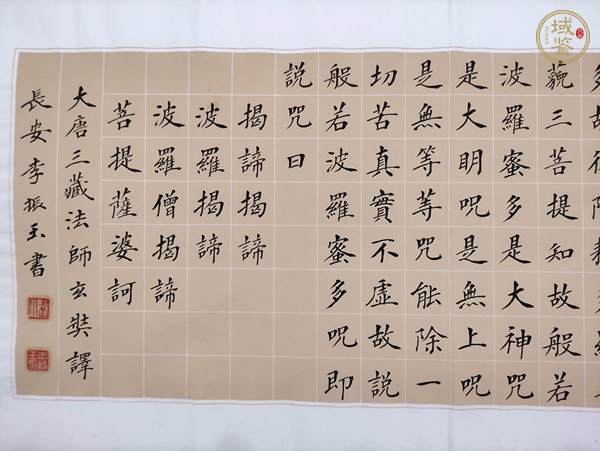 藐三菩提知故般若
波羅蜜多是大神咒
是大明呪是無上呪
是無等等咒能除一
切苦真實不虛故說
般若波羅蜜多呪即
說咒曰
揭諦揭諦
波羅揭諦
波羅僧揭諦
菩提薩婆訶
大唐三藏法師玄奘譯
長安李振玉書
域鉴